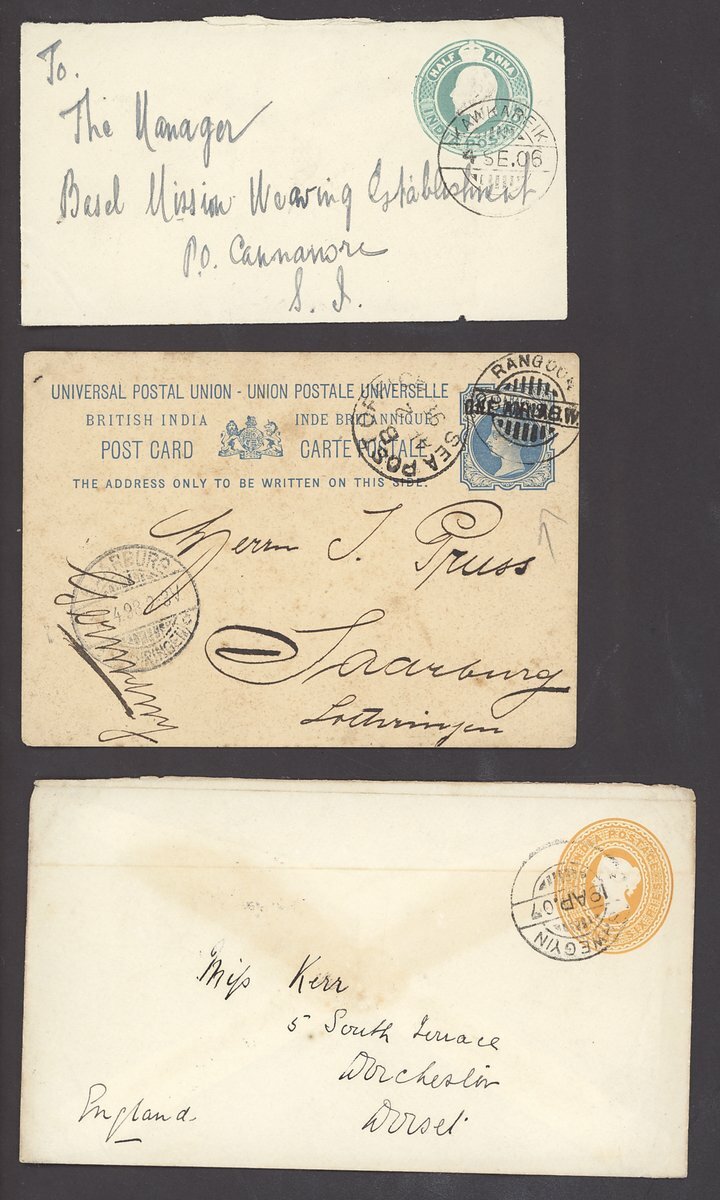 To.
The Manager
Basel Mission Weaving Establishment
P.O. Cannanore
S. I.
HALF ANNA
KAWKAREIK
4 SE.06
UNIVERSAL POSTAL UNION - UNION POSTALE UNIVERSELLE
BRITISH INDIA INDE BRITANNIQUE
POST CARD CARTE POSTALE
THE ADDRESS ONLY TO BE WRITTEN ON THIS SIDE.
SEA POST OFFICE
RANGOON
Herrn J. Pruss
Saarburg
Lothringen
Germany
INDIA POSTAGE
19 AP.07
Miss Kerr
5 South Terrace
Dorchester
Dorset
England